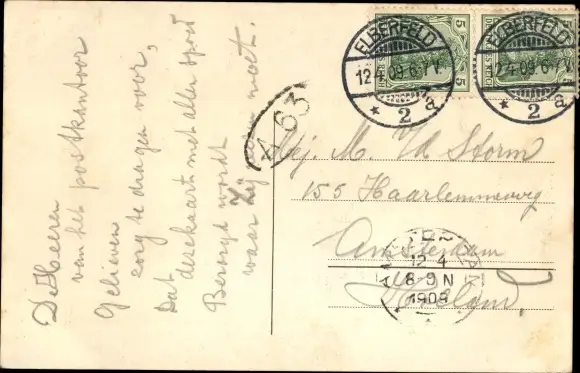 De Heeren
van het postkantoor
Gelieven
zorg te dragen voor,
dat
deze kaart met aller spoed
Bezorgd wordt
waar Zij wezen moet.
A 63
5 5
5 5
ELBERFELD
12.4.09.6-7V.
* 2 a
ELBERFELD
12.4.09.6-7V.
* 2 a
Mej. M. v/d Storm
155 Haarlemmerweg
Amsterdam
Holland
12·4
8-9 N
1909